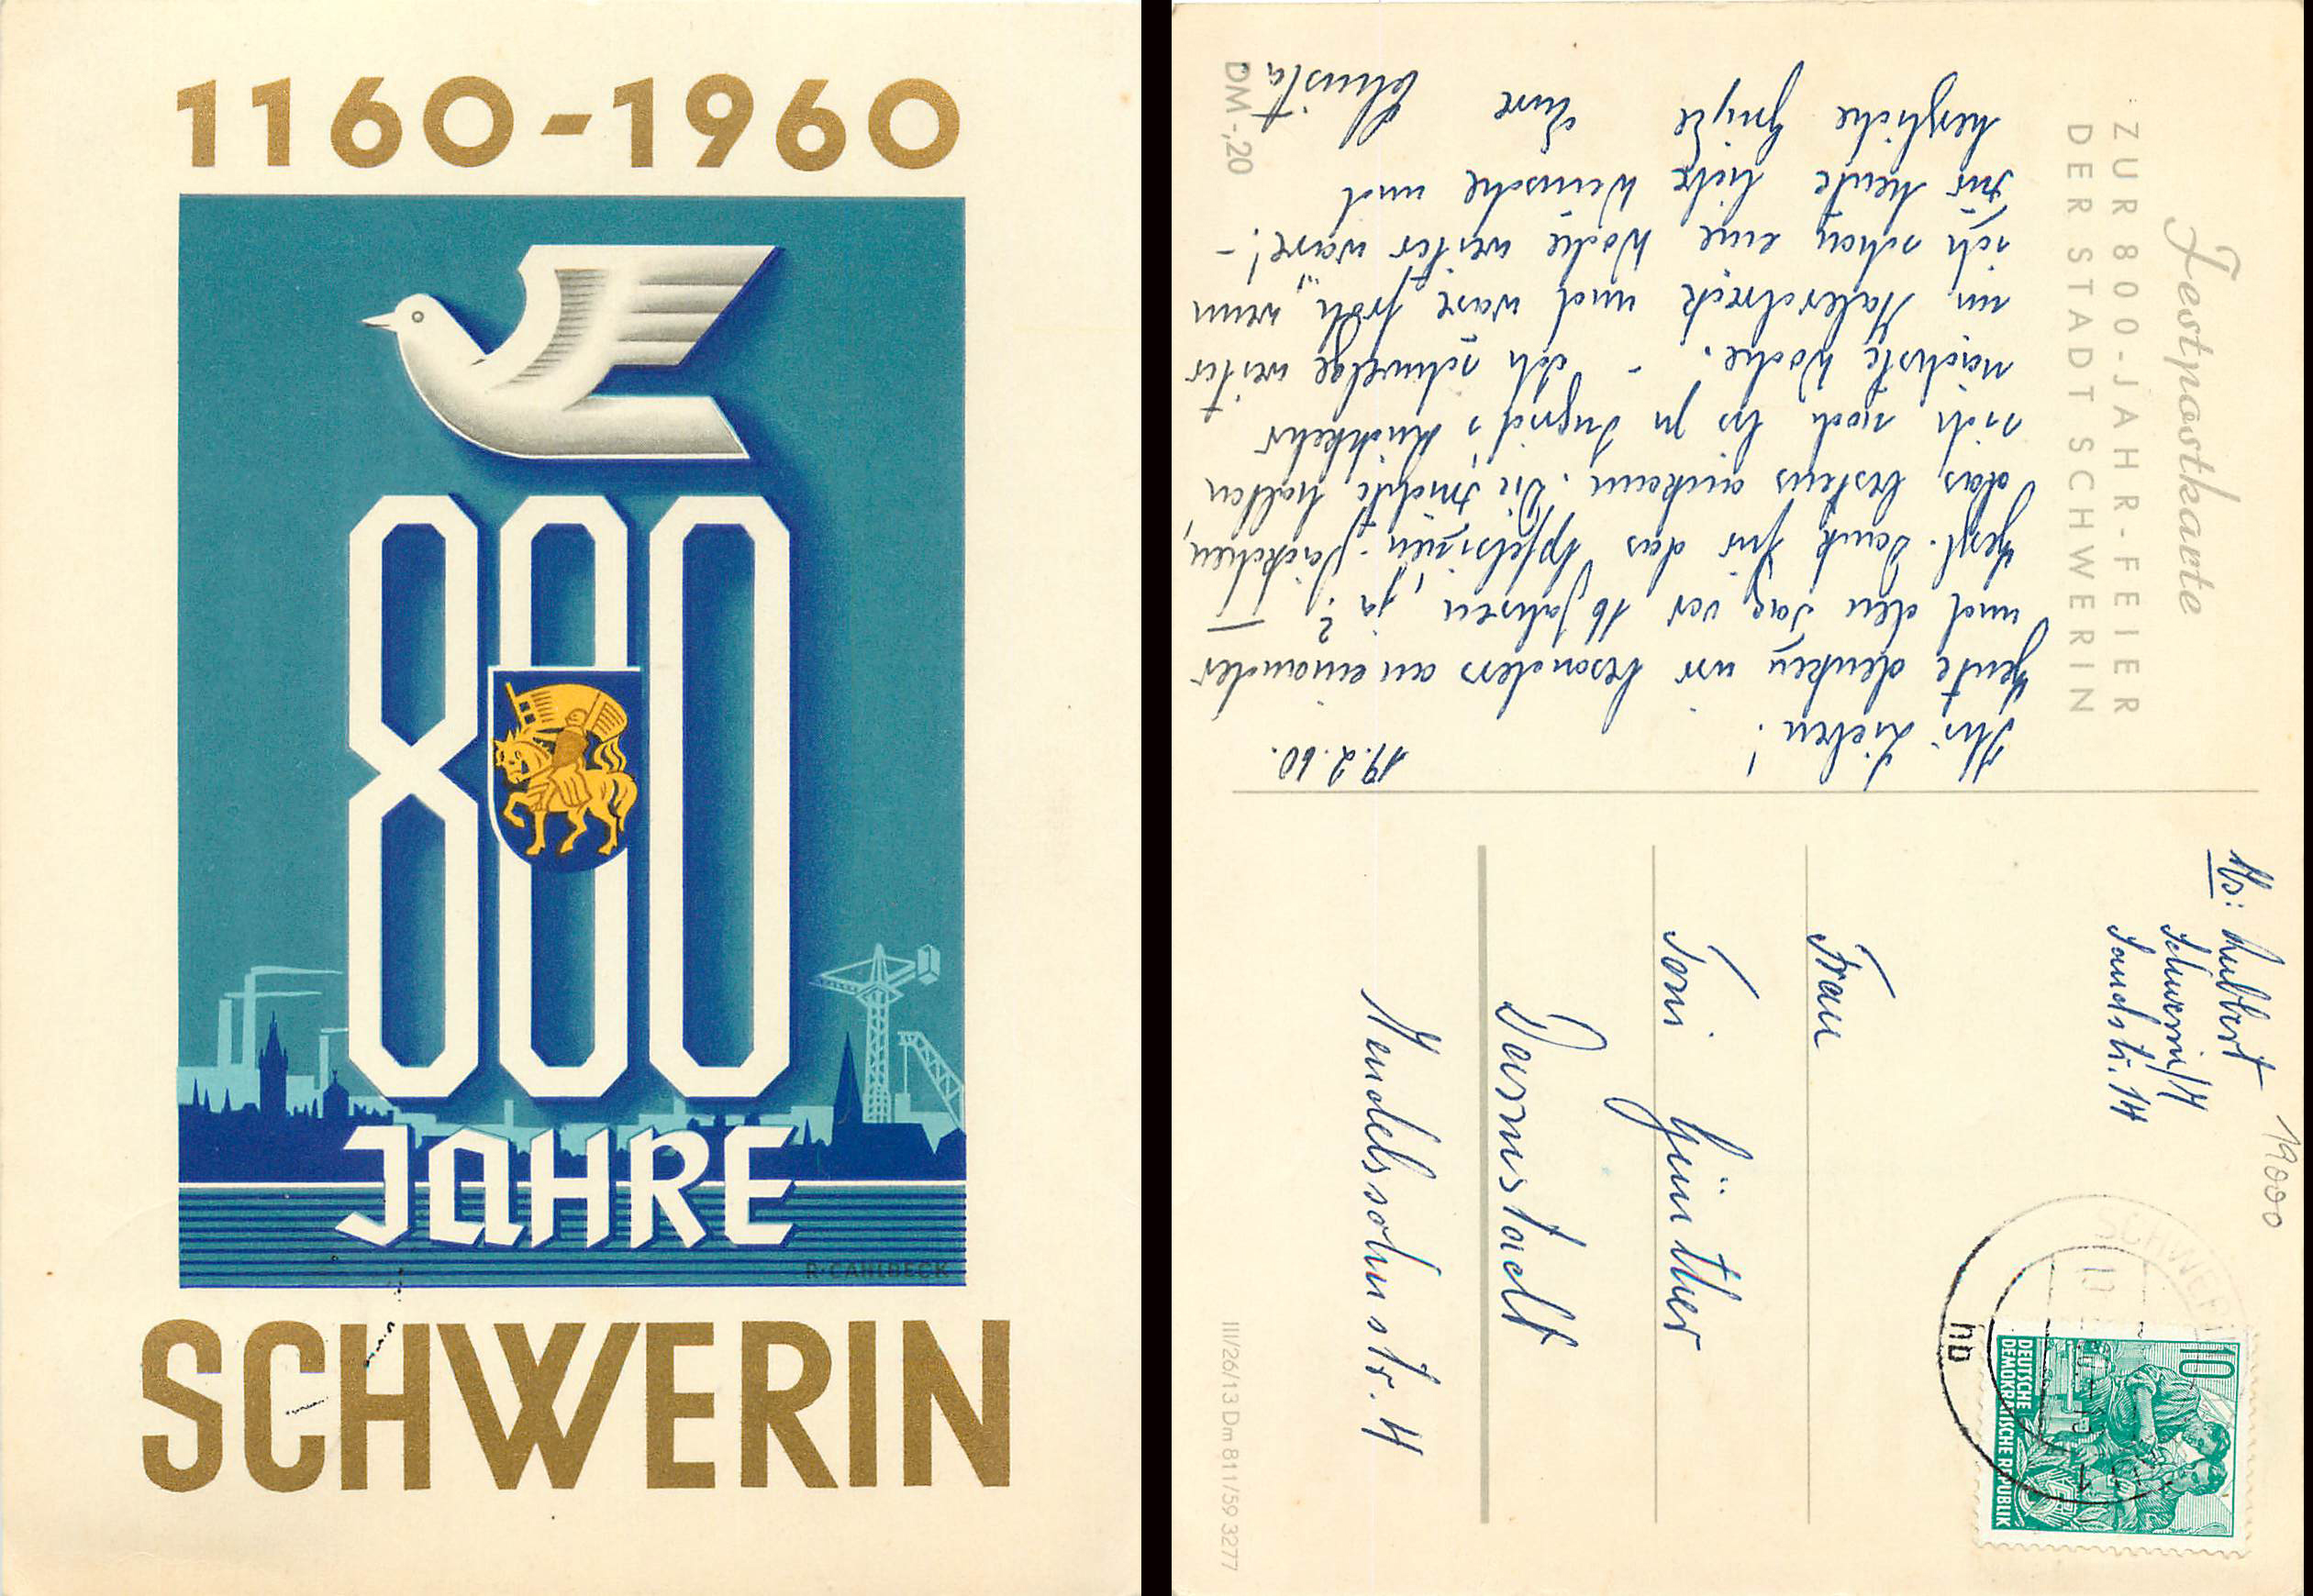 1160-1960
800
JAHRE
R. CAHLBECK
SCHWERIN
Festpostkarte
ZUR 800-JAHR-FEIER
DER STADT SCHWERIN
19.2.60.
Ihr Lieben!
Heute denken wir besonders an einander
und den Tag vor 16 Jahren, ja? —
Herzl. Dank für das Apfelsinen-Päckchen,
das bestens ankam. Die Früchte halten
sich noch bis zu Ingrid's Rückkehr
nächste Woche. - Ich schwelge weiter
im und wäre froh, wenn
ich schon eine Woche weiter wäre! -
Für heute liebe Wünsche und
herzliche Grüße Eure Christa.
DM -,20
Abs: Lubbert
Schwerin/M
Sandstr. 14
19000
SCHWERIN
hb
10
DEUTSCHE
DEMOKRATISCHE REPUBLIK
Frau
Toni Günther
Darmstadt
Mendelssohnstr. 4
III/26/13 Dm 811/59 3277